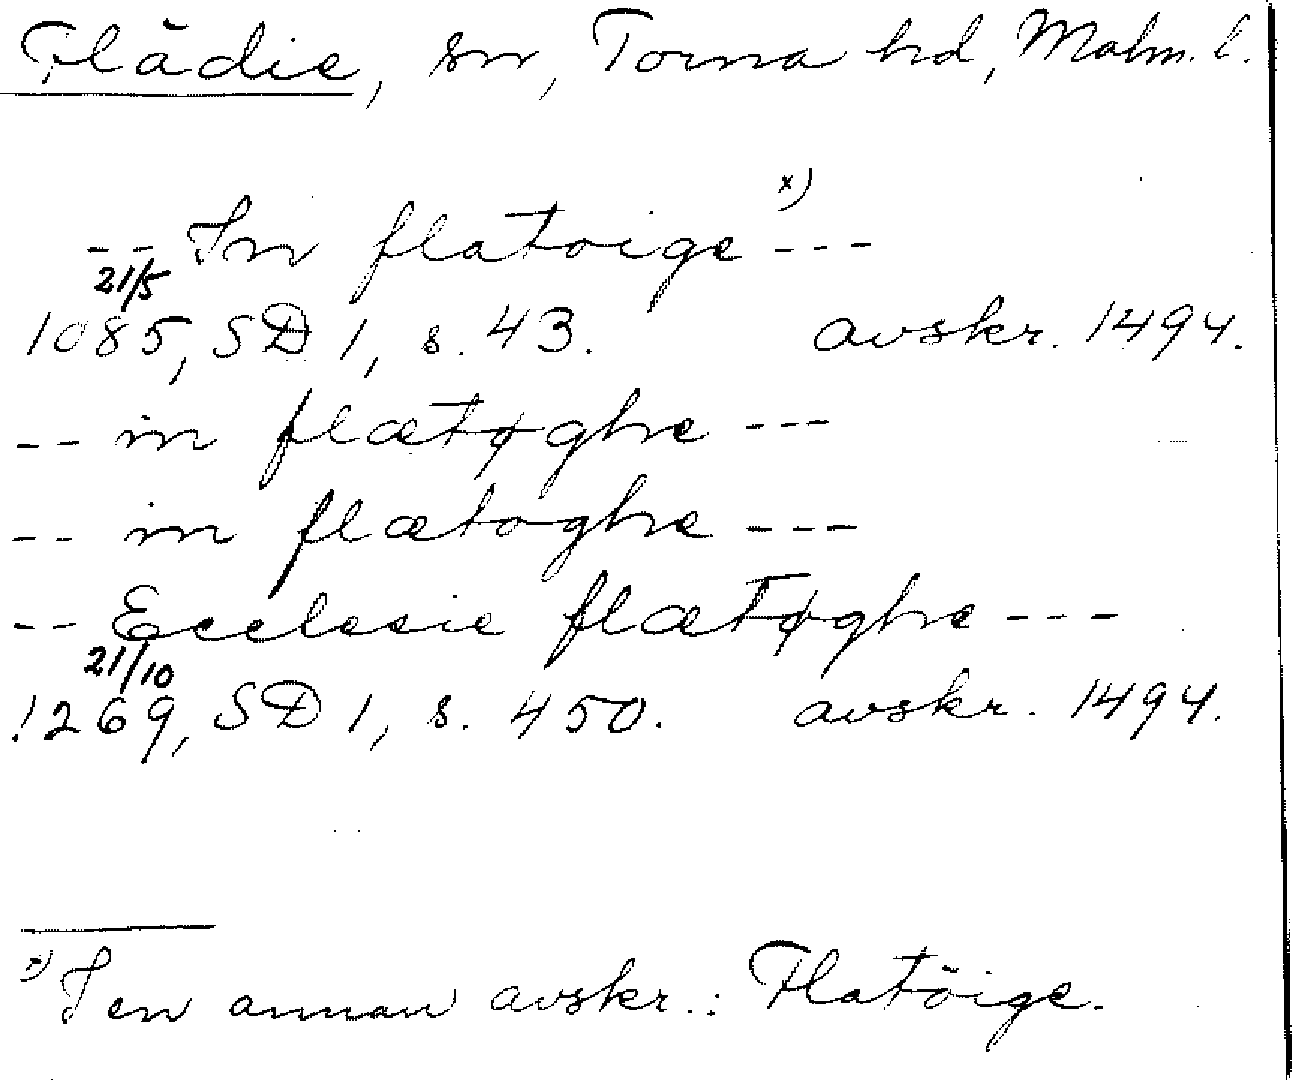 Flädie, sn, Torna hd, Malm. l.
-- In flatoige x) ---
21/5
1085, SD 1, s. 43. avskr. 1494.
-- in flætøghe ---
-- in flætoghe ---
-- Ecclesie flætøghe ---
21/10
1269, SD 1, s. 450. avskr. 1494.
x) I en annan avskr.: Flatöige.